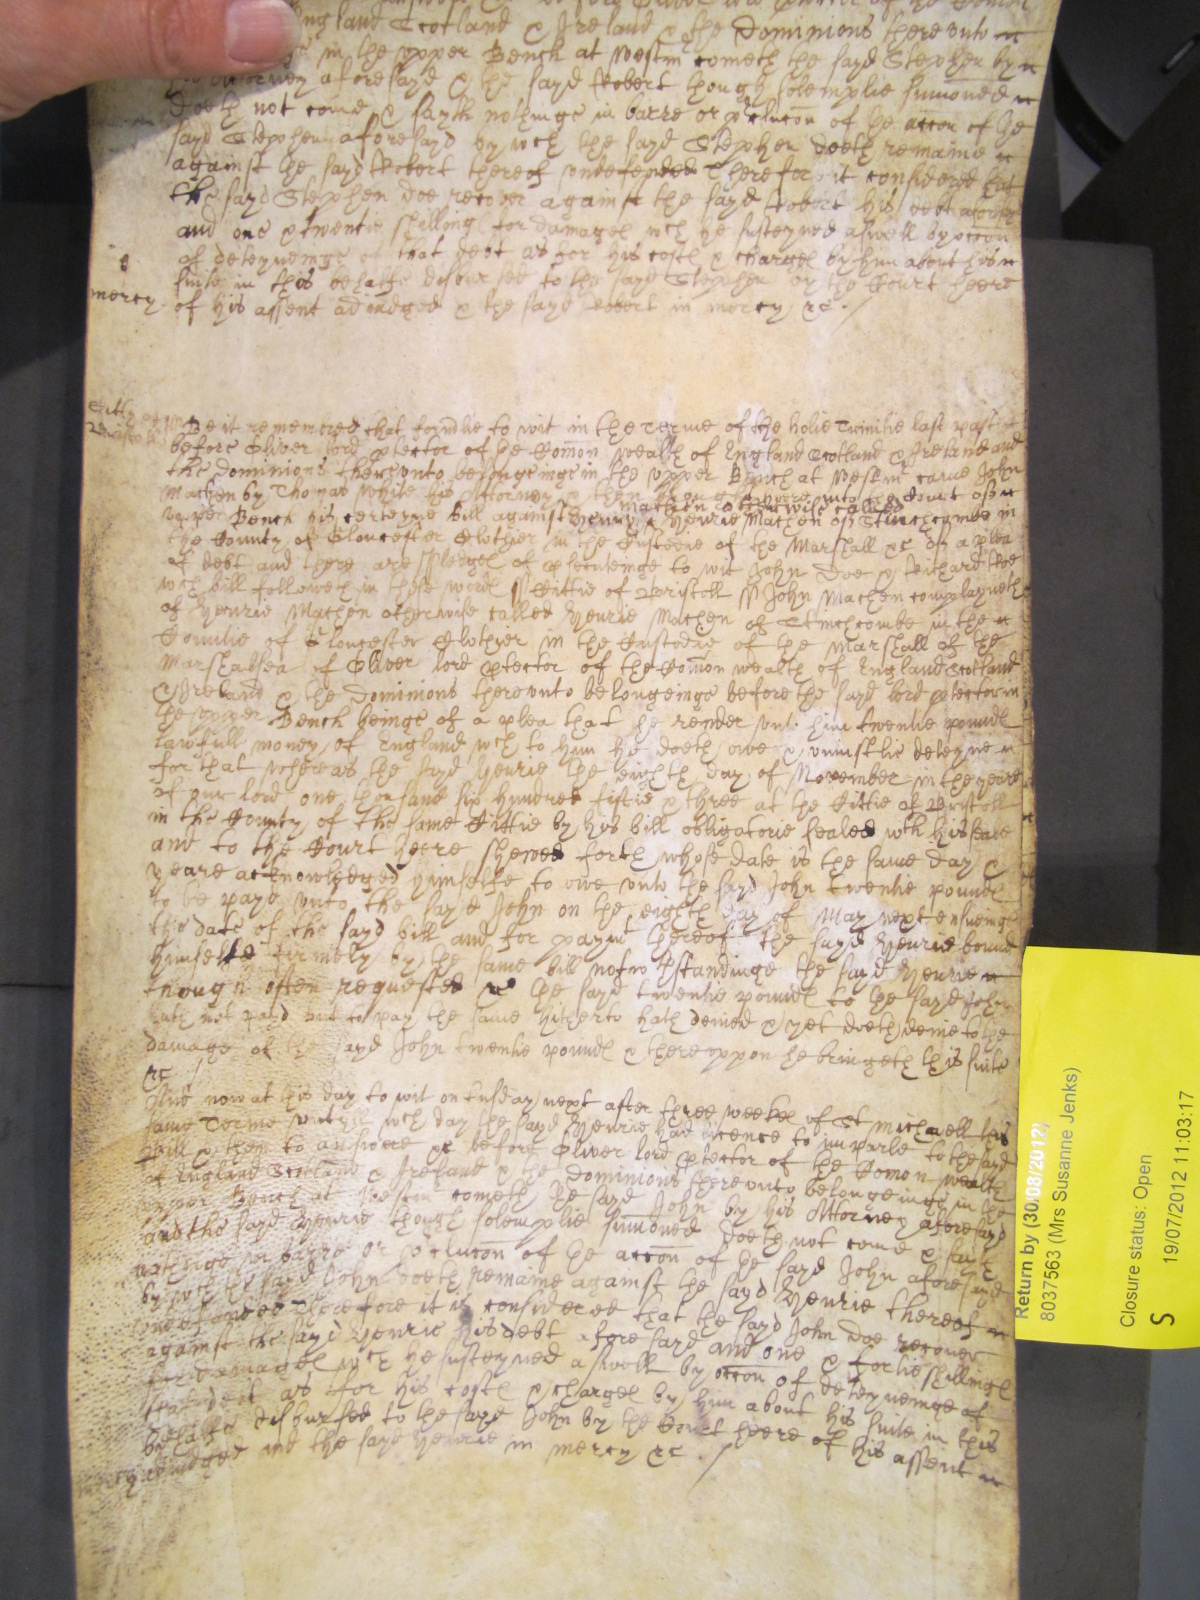 England Scotland & Ireland & the Dominions thereunto
in the upper Bench at Westm cometh the sayd Stephen by
his Attorney aforesayd & the sayd Robert though solemplie sumoned
doeth not come & sayth nothinge in barre or pclucon of the accon of the
sayd Stephen aforesayd by wch the sayd Stephen doeth remaine
against the sayd Robert thereof undefended Therefore it considered that
the sayd Stephen doe recover against the sayd Robert his debt aforesayd
and one & twentie shillings for damages wch he susteyned aswell by occon
of deteyneinge of that debt as for his costs & charges by him about his
suite in this behalfe disbursed to the sayd Stephen by the Court heere
mercy of his assent adiudged & the sayd Robert in mercy &c ./
Cittie of
Bristoll
Be it remembred that formlie to wit in the terme of the holie Trinitie last past
before Oliver lord ptector of the Comon wealth of England Scotland & Ireland and
the dominions thereunto belongeinge in the upper Bench at Westm came John
Machen by Thomas White his Attorney & then brought heere into the Court of
Machen otherwise called
upper Bench his certeyne bill against Henrie & Henrie Machen of Stinchcombe in
the County of Gloucester Clothier in the Custodie of the Marshall &c of a plea
of debt and there are pledges of psecuteinge to wit John Doe & Richard Roe
wch bill followeth in these words ss Cittie of Bristoll ss John Machen complayneth
of Henrie Machen otherwise called Henrie Machen of Stinchcombe in the
Countie of Gloucester Clothyer in the Custodie of the Marshall of the
Marshalsea of Oliver lord ptector of the Comon wealth of England Scotland
& Ireland & the Dominions thereunto belongeinge before the sayd lord ptector in
the upper Bench beinge of a plea that he render unto him twentie pounds
lawfull money of England wch to him he doeth owe & uniustlie deteyne
for that whereas the sayd Henrie the eighth day of November in the yeare
of our lord one thousand six hundred fiftie & three at the Cittie of Bristoll
in the County of the same Cittie by his bill obligatorie sealed wth his seale
and to the Court heere shewed forth whose date is the same day &
yeare acknowledged himselfe to owe unto the sayd John twentie pounds
to be payd unto the sayd John on the eighth day of May next ensueinge
the date of the sayd bill and for paymt thereof the sayd Henrie bound
himselfe firmely by the same bill notwthstandinge the sayd Henrie
though often requested &c the sayd twentie pounds to the sayd John
hath not payd but to pay the same hitherto hath denied & yet doeth denie to the
damage of the sayd John twentie pounds & thereuppon he bringeth this suite
&c /
And now at this day to wit on tusday next after three weekes of St Michaell this
same Terme untill wch day the sayd Henrie had licence to imparle to the sayd
bill & then to answere &c before Oliver lord ptector of the Comon wealth
of England Scotland & Ireland & the Dominions thereunto belongeinge in the
upper Bench at Westm cometh the sayd John by his Attorney aforesayd
and the sayd Henrie though solemplie sumoned doeth not come & sayth
nothinge in barre or pclucon of the accon of the sayd John aforesayd
by wch the sayd John doeth remaine against the sayd Henrie thereof
undefended Therefore it is considered that the sayd John doe recover
against the sayd Henrie his debt aforesayd and one & fortie shillings
for damages wch he susteyned aswell by occon of deteyneinge of
that debt as for his costs & charges by him about his suite in this
behalfe disbursed to the sayd John by the Court heere of his assent
mercy adiudged and the sayd Henrie in mercy &c ./
Return by (30/08/2012)
8037563 (Mrs Susanne Jenks)
Closure status: Open
S 19/07/2012 11:03:17